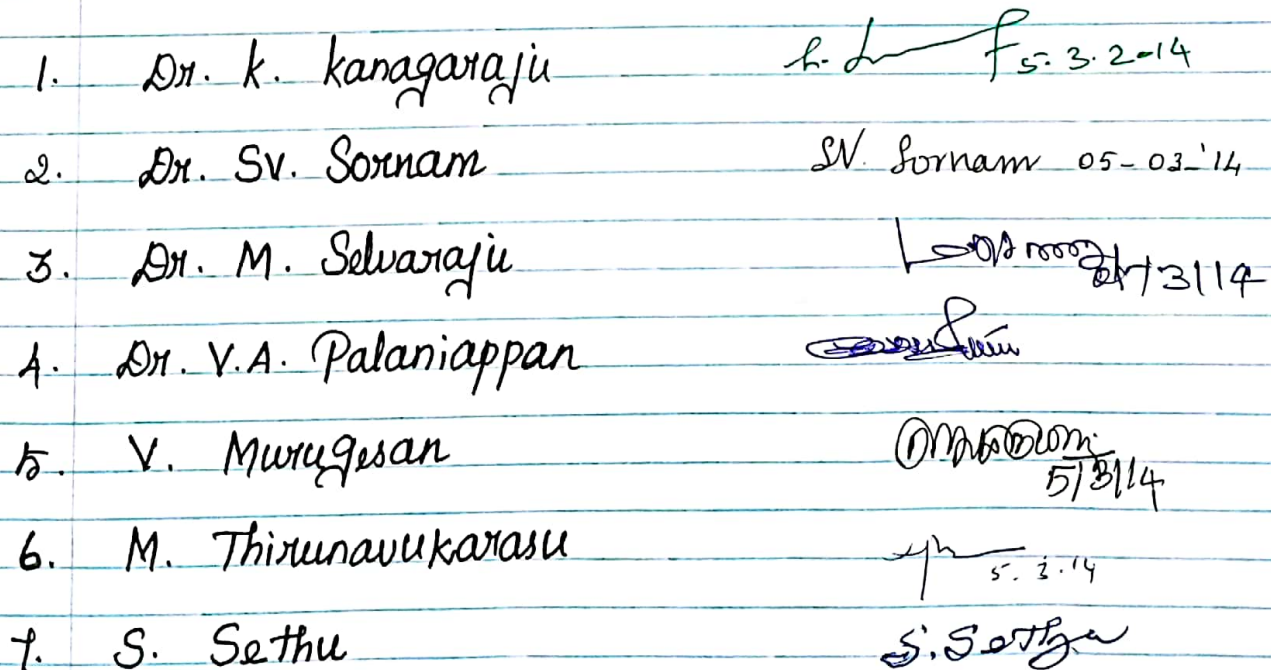 1. Dr. K. Kanagaraju 5.3.2014
2. Dr. SV. Sornam SV. Sornam 05-03-'14
3. Dr. M. Selvaraju /3/14
4. Dr. V.A. Palaniappan
5. V. Murugesan 5/3/14
6. M. Thirunavukarasu 5.3.14
7. S. Sethu S. Sethu